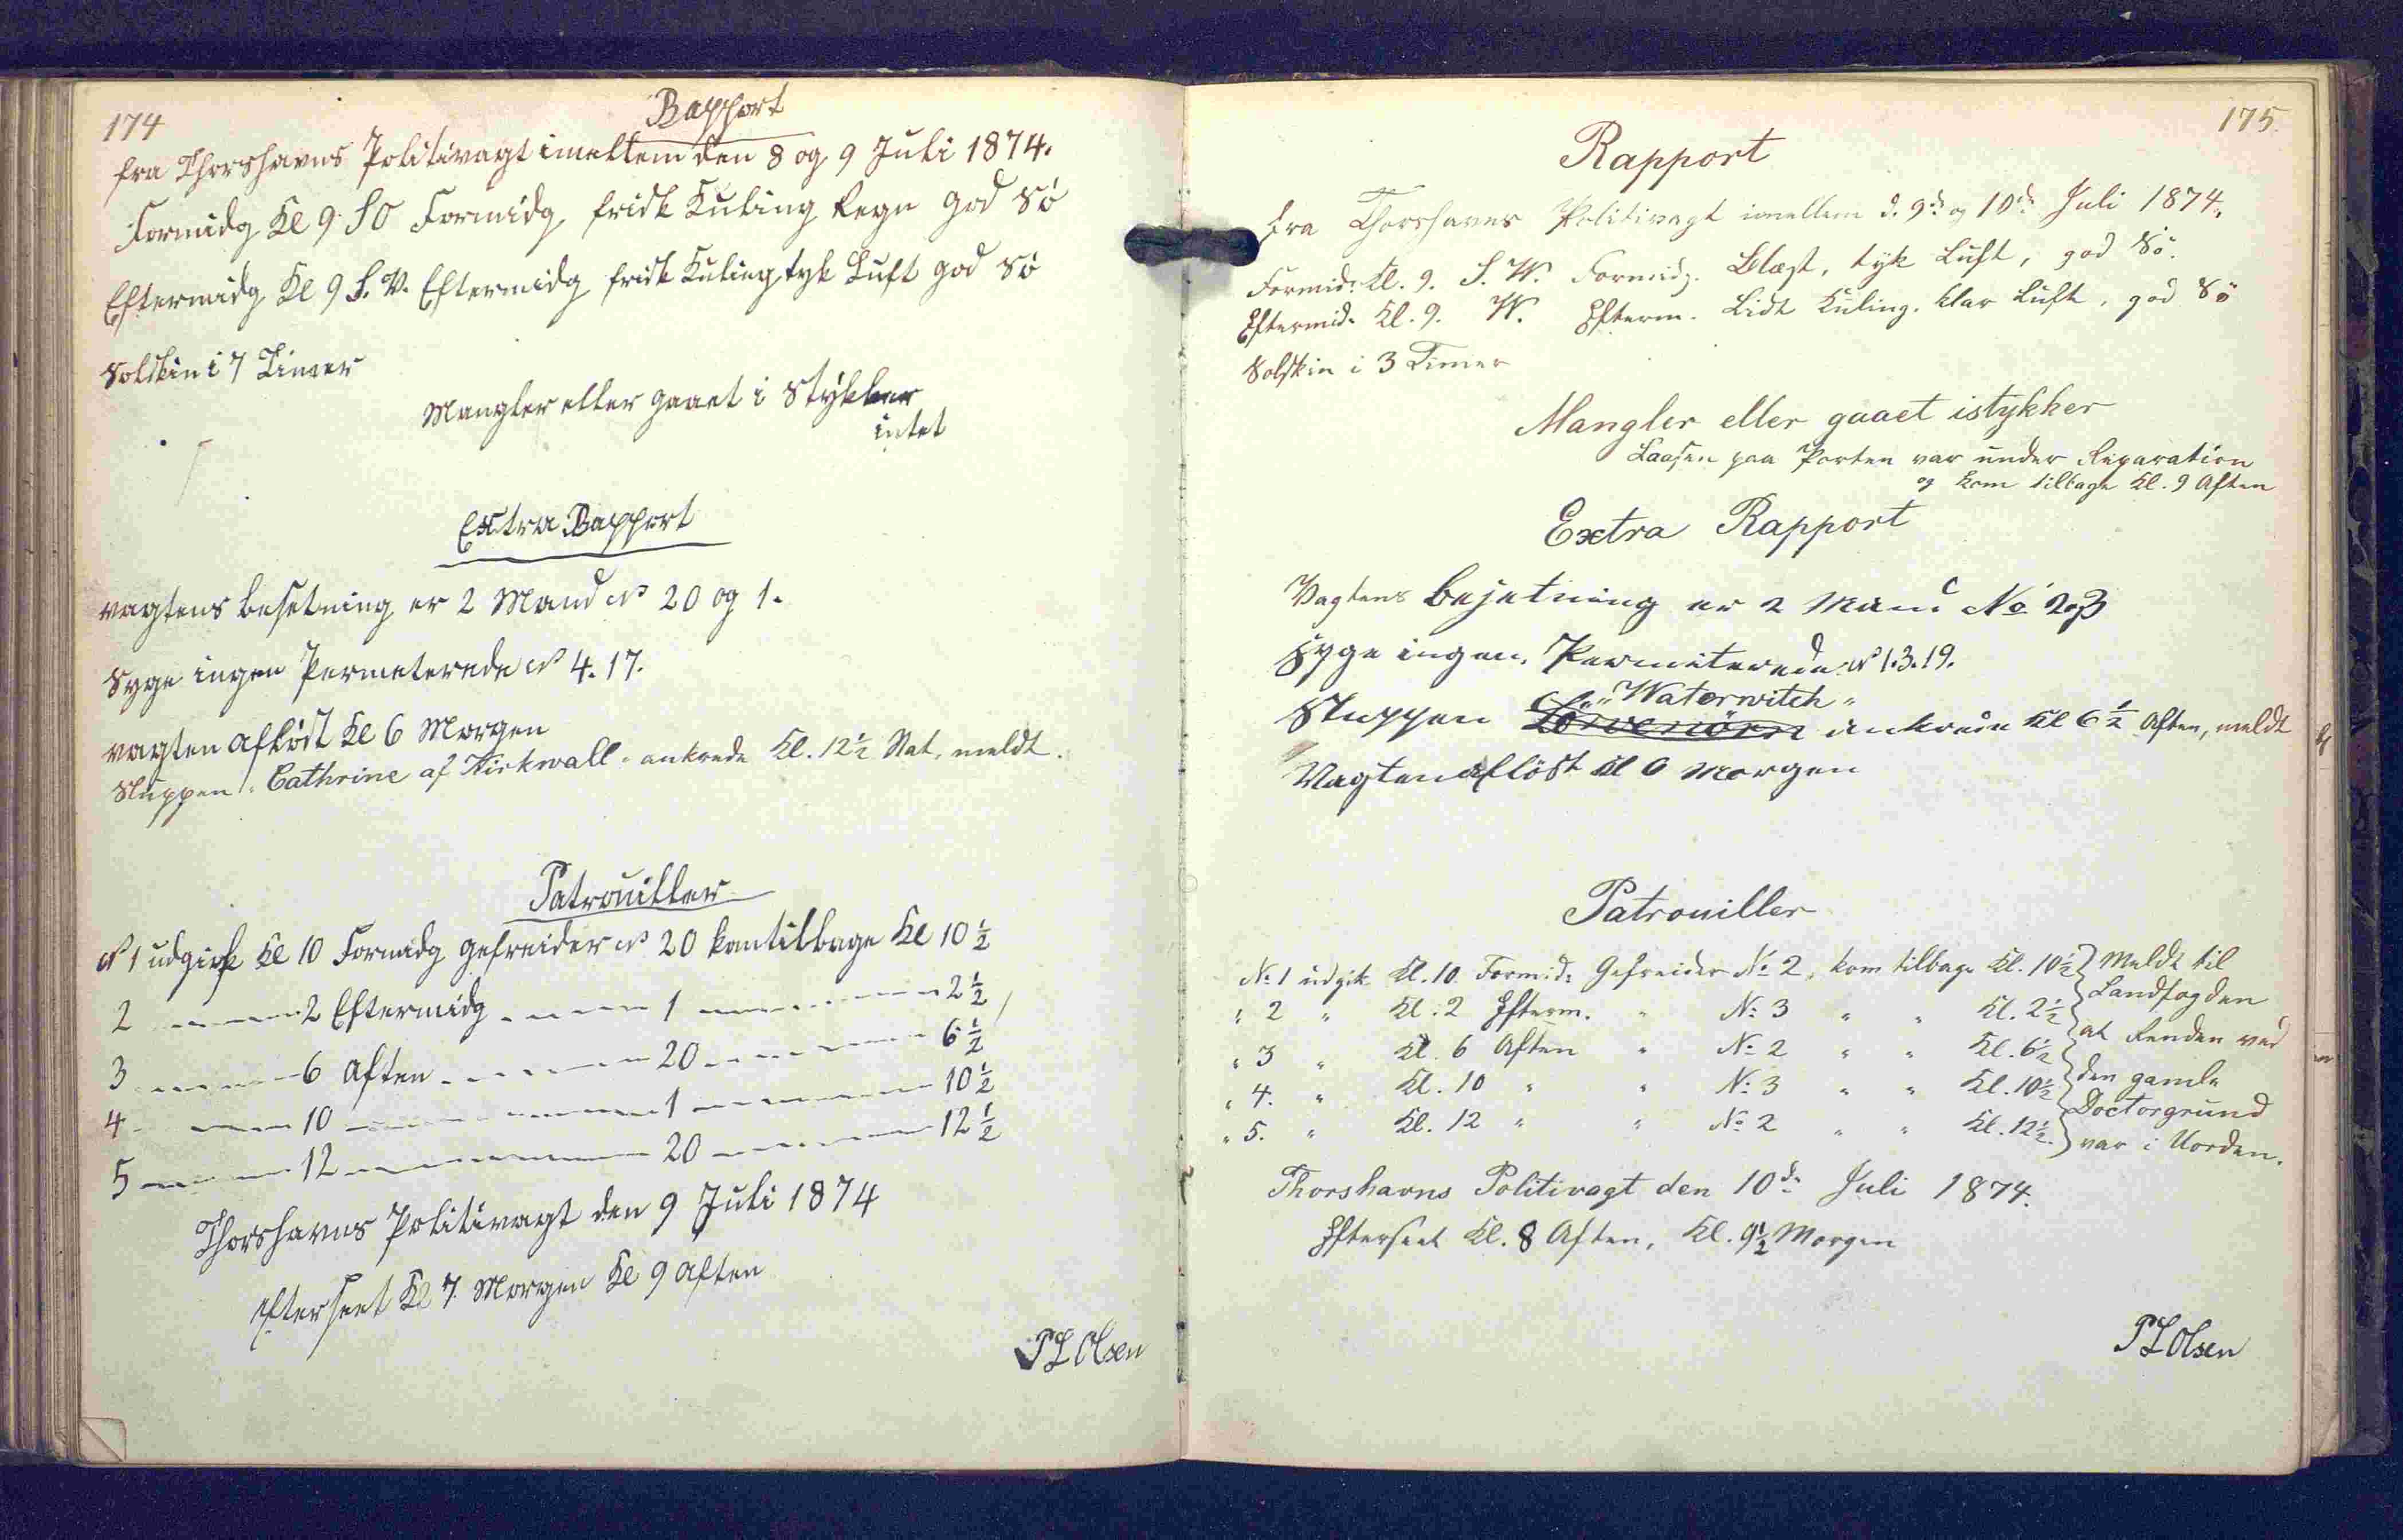 174
Rapport
fra Thorshavns Politivagt imellem den 8 og 9 Juli 1874.
Formidg Kl 9 SO Formidg, frisk Kuling Regn god Sö
Eftermidg Kl 9 S.V. Eftermidg frisk Kuling tyk Luft god Sö
Solskin i 7 Timer
Mangler eller gaaet i Stykker
intet
Extra Rapport
vagtens besetning er 2 Mand № 20 og 1.
Syge ingen Permeterede № 4. 17.
vagten aflöst Kl 6 Morgen
Sluppen "Cathrine af Kirkwall" ankrede Kl. 12½ Nat, meldt.
Patrouiller
№ 1 udgik Kl 10 Formidg gefreider № 20 kom tilbage Kl 10½
2 — — — 2 Eftermidg — — — 1 — — — 2½
3 — — — 6 Aften — — — 20 — — — 6½
4 — — — 10 — — — 1 — — — 10½
5 — — — 12 — — — 20 — — — 12½
Thorshavns Politivagt den 9 Juli 1874
Efterseet Kl 7 Morgen Kl 9 Aften
PLOlsen
175.
Rapport
fra Thorshavns Politivagt imellem d. 9d: og 10d: Juli 1874.
Formid: Kl. 9. S. W. Formidg. Blæst, tyk Luft, god Sö.
Eftermid. Kl. 9. W. Efterm. Lidt Kuling. klar Luft, god Sö
Solskin i 3 Timer
Mangler eller gaaet istykker
Laasen paa Porten var under Reparation
og kom tilbage Kl. 9 Aften
Extra Rapport
Vagtens Besetning er 2 Mand № 2 3
Syge ingen. Permiterede № 1. 3. 19.
"Waterwitch"
Sluppen ankrede Kl 6½ Aften, meldt
Vagten aflöst Kl 6 Morgen
Patrouiller
№ 1 udgik Kl. 10. Formid: Gefreider № 2, kom tilbage Kl. 10½ Meldt til
" 2 " Kl. 2 Efterm. " № 3 " " Kl. 2½ Landfogden
" 3 " Kl. 6 Aften " № 2 " " Kl. 6½ at Renden ved
" 4. " Kl. 10 " " № 3 " " Kl. 10½ den gamle
" 5. " Kl. 12 " " № 2 " " Kl. 12½. Doctorgrund
var i Uorden.
Thorshavns Politivagt den 10d: Juli 1874.
Efterseet Kl. 8 Aften, Kl. 9½ Morgen
PLOlsen